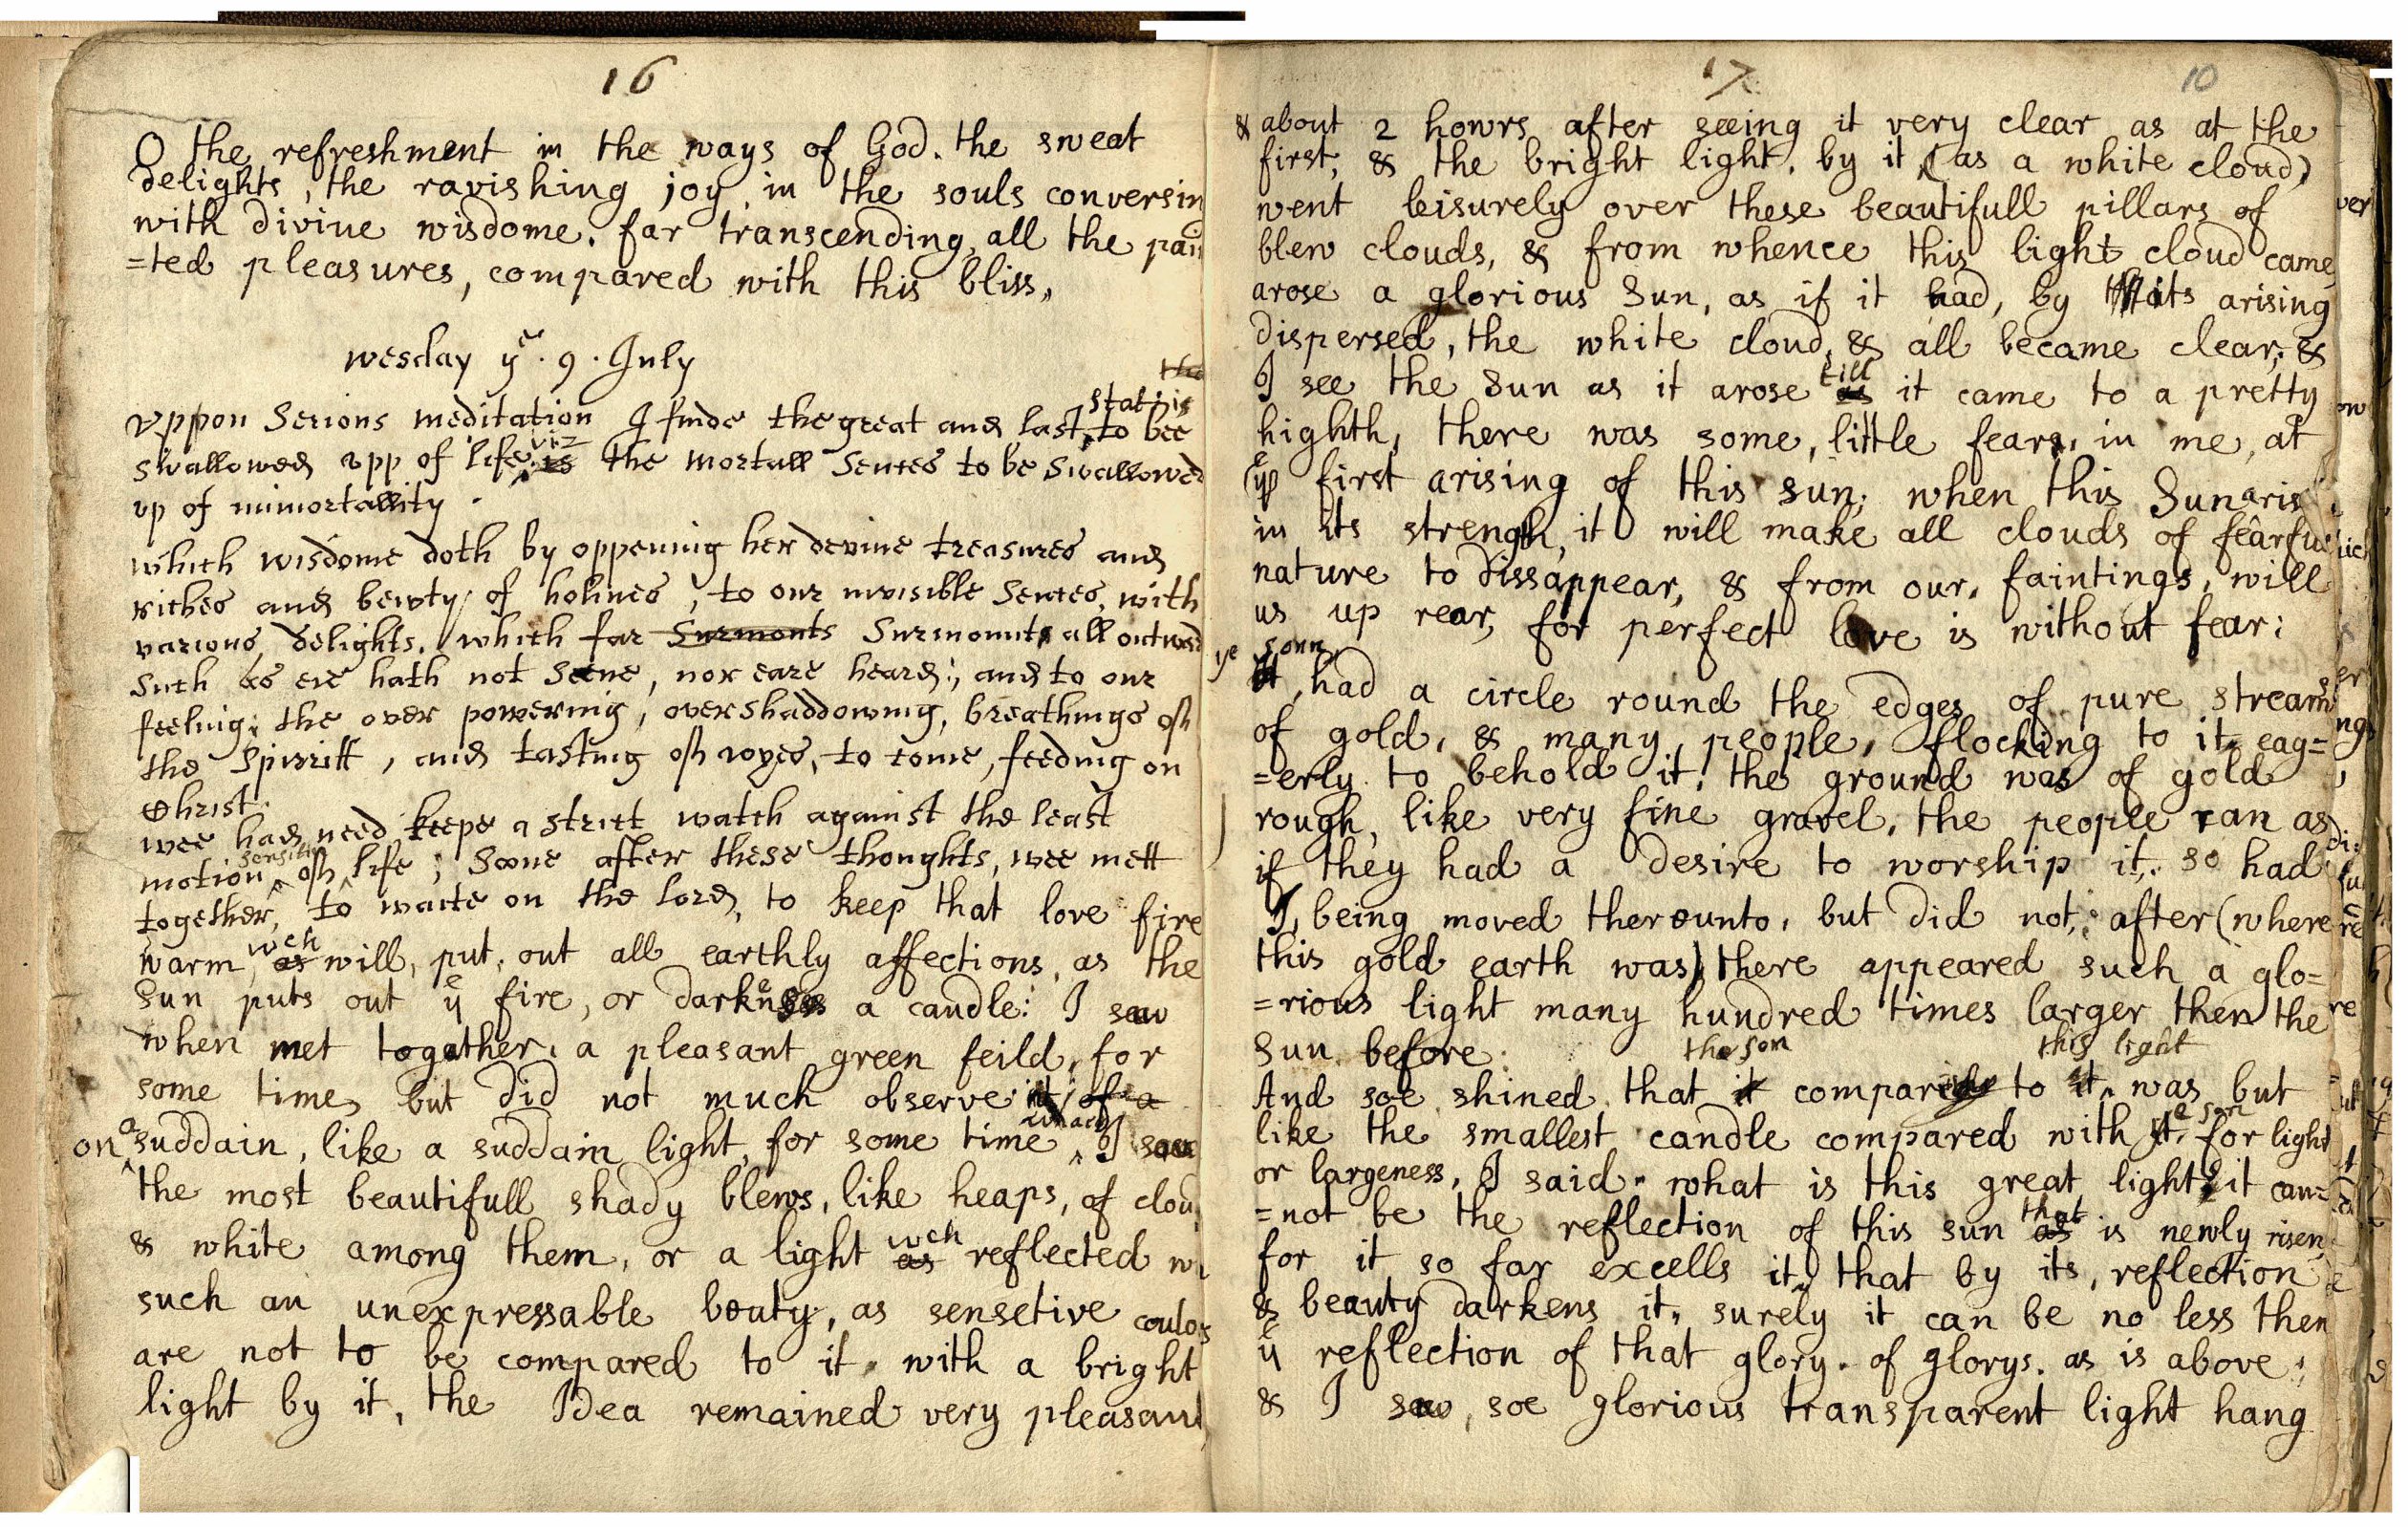 16
O the refreshment in the ways of God. the sweat
delights, the ravishing joy in the souls conversin
with divine wisdome. far transcending all the pain
=ted pleasures, compared with this bliss,
wesday yᵉ. 9. July
the
stat: is
Vppon Serious meditation I finde the great and last, to bee
swallowed vpp of life viz is the mortall Sences to be swallowed
vp of immortallity.
which wisdome doth by oppening her devine treasures and
riches and bewty, of holines, to our invisible Sences, with
various delights. which far Surmonts Surmounts all outwrd
such as eie hath not seene, nor eare heard; and to our
feeling; the over powering, overshaddowing, breathings of
the Spirritt, and tasting of ioyes, to come, feeding on
Christ.
wee had need keepe a strict watch against the least
motion sensitive of life; Soone after these thoughts, wee mett
together, to waite on the lord, to keep that love fire
warm, wch as will, put, out all earthly affections, as the
Sun puts out yᵉ fire, or darkness a candle: I saw
when met togather, a pleasant green feild, for
some time, but did not much observe it, of a
on a suddain, like a suddain light, for some time, I saw
the most beautifull shady blews, like heaps, of clou
& white among them, or a light wch as reflected wi
such an unexpressable bouty, as sensetive coulors
are not to be compared to it, with a bright
light by it, the Idea remained very pleasant
17
10
& about 2 howrs after seeing it very clear as at the
first, & the bright light, by it, (as a white cloud)
went leisurely over these beautifull pillars of
blew clouds, & from whence this light cloud came
arose a glorious Sun, as if it had, by its arising
dispersed, the white cloud, & all became clear; &
I see the Sun as it arose till as it came to a pretty
highth, there was some, little fears, in me, at
yᵉ first arising of this sun; when this Sun aris
in its strength, it will make all clouds of fearfull
nature to dissappear, & from our, faintings, will
us up rear, for perfect love is without fear:
ye sonn
It, had a circle round the edges of pure streams
of gold, & many people, flocking to it eag=
=erly to behold it; the ground was of gold
rough, like very fine gravel, the people ran as
if they had a desire to worship it, so had
I, being moved therounto, but did not; after (where
this gold earth was) there appeared such a glo=
=rious light many hundred times larger then the
Sun before.
the son this light
And soe shined that it compared to it, was but
like the smallest candle compared with it yᵉ son for light
or largeness, I said, what is this great light, it can=
=not be the reflection of this sun that as is newly risen
for it so far excells it, that by its, reflection
& beauty darkens it, surely it can be no less then
yᵉ reflection of that glory. of glorys. as is above;
& I saw, soe glorious transparent light hang